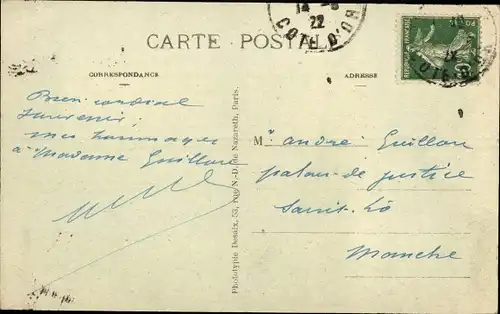 14 -8
22
COTE D'OR
CARTE POSTALE
CORRESPONDANCE
ADRESSE
Bien cordial
souvenir,
mes hommages
à Madame Guillou
M. André Guillou
palais de justice
Saint-Lô
Manche
Phototypie Desaix, 53, rue N.-D. de Nazareth, Paris.